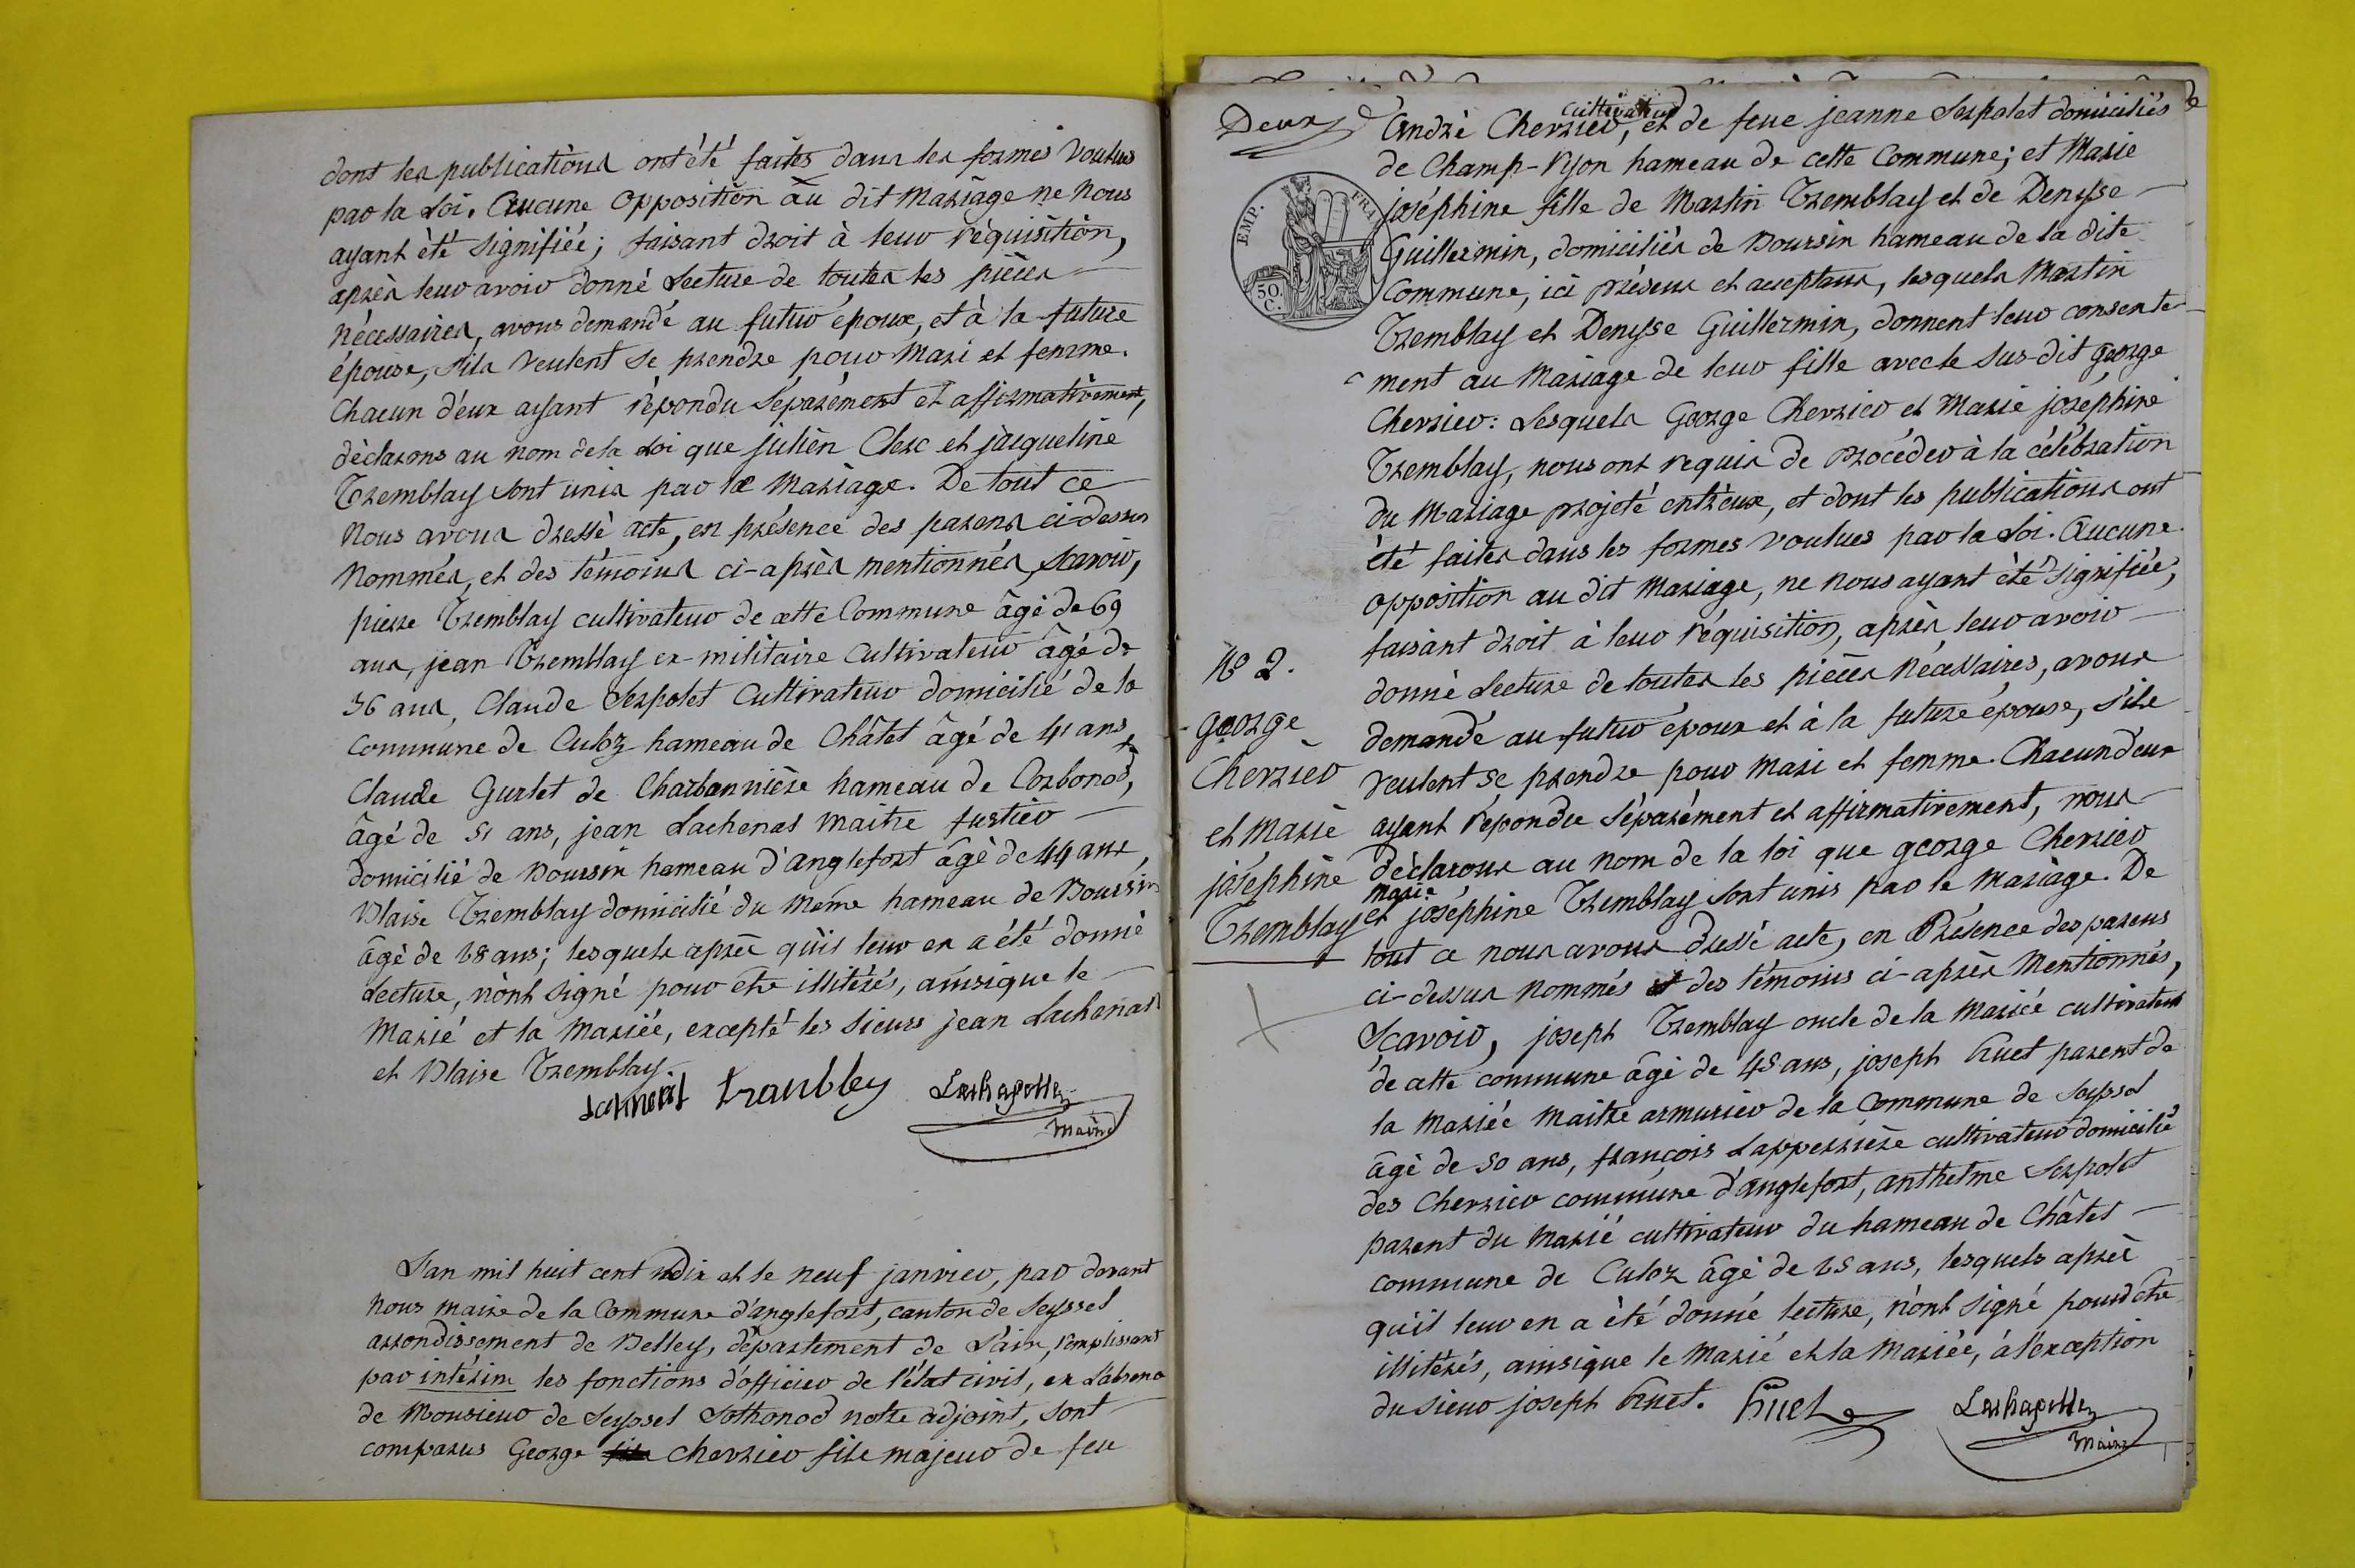 dont les publications ont été faites dans les formes voulues
par la Loi. Aucune opposition au dit Mariage ne nous
ayant été signifiée; faisant droit à leur réquisition,
après leur avoir donné Lecture de toutes les pièces
nécessaires, avons demandé au futur époux, et à la future
épouse, s'ils veulent se prendre pour Mari et femme.
Chacun d'eux ayant répondu séparément et affirmativement,
déclarons au nom de la Loi que julien Clerc et jacqueline
Tremblay sont unis par le Mariage. De tout ce
Nous avons dressé acte, en présence des parens ci-dessus
Nommés, et des témoins ci-après mentionnés, Scavoir,
pierre Tremblay cultivateur de cette Commune âgé de 69
ans, jean Tremblay ex-militaire Cultivateur âgé de
36 ans, Claude Serpolet Cultivateur domicilié de la
Commune de Culoz hameau de Châtel âgé de 41 ans,
Claude Gurlet de Charbonnière hameau de Corbonod,
âgé de 51 ans, jean Lachenal Maitre fustier
domicilié de Boursin hameau d'anglefort âgé de 44 ans,
Blaise Tremblay domicilié du même hameau de Boursin
âgé de 28 ans; lesquels après qu'il leur en a été donné
Lecture, n'ont signé pour être illitérés, ainsique le
Marié et la Mariée, excepté les Sieurs jean Lachenal
et Blaise Tremblay.
Trambley Lachapelle
maire
L'an mil huit cent dix et le neuf janvier, par devant
Nous maire de la Commune d'anglefort, canton de Seyssel
arrondissement de Belley, département de L'ain, remplissant
par intérim les fonctions d'officier de l'état civil, en L'absence
de Monsieur de Seyssel Sothonod notre adjoint, sont
comparus George fils Cherrier fils majeur de feu
Deux
EMP. FRA
50 C.
cultivateur
André Cherrier, et de feue jeanne Serpolet domiciliés
de Champ-Rion hameau de cette Commune; et Marie
joséphine fille de Martin Tremblay et de Denyse
Guillermin, domiciliés de Boursin hameau de la dite
Commune, ici présens et acceptans, lesquels Martin
Tremblay et Denyse Guillermin, donnent leur consente
ment au Mariage de leur fille avec le Sus-dit george
Cherrier: Lesquels George Cherrier et Marie joséphine
Tremblay, nous ont requis de procéder à la célébration
du Mariage projeté entr'eux, et dont les publications ont
été faites dans les formes voulues par la Loi. Aucune
opposition au dit Mariage, ne nous ayant été signifiée;
faisant droit à leur réquisition, après leur avoir
donné Lecture de toutes les pièces nécessaires, avons
demandé au futur époux et à la future épouse, s'ils
veulent se prendre pour Mari et femme. Chacun d'eux
ayant répondu séparément et affirmativement, nous
déclarons au nom de la loi que george Cherrier
marie
et joséphine Tremblay sont unis par le Mariage. De
tout ce nous avons dressé acte, en Présence des parens
ci-dessus nommés et des témoins ci-après Mentionnés,
Scavoir, joseph Tremblay oncle de la Mariée cultivateur
de cette commune âgé de 48 ans, joseph huet parent de
la Mariée Maitre armurier de la Commune de Seyssel
âgé de 50 ans, françois Lapperrière cultivateur domicilié
des Cherrier commune d'anglefort, anthelme Serpolet
parent du Marié cultivateur du hameau de Châtel
commune de Culoz âgé de 28 ans, lesquels après
qu'il leur en a été donné lecture, n'ont signé pour être
illitérés, ainsique le Marié et la Mariée, à l'exception
du sieur joseph huet. huet Lachapelle
maire
No 2.
george
Cherrier
et Marie
joséphine
Tremblay